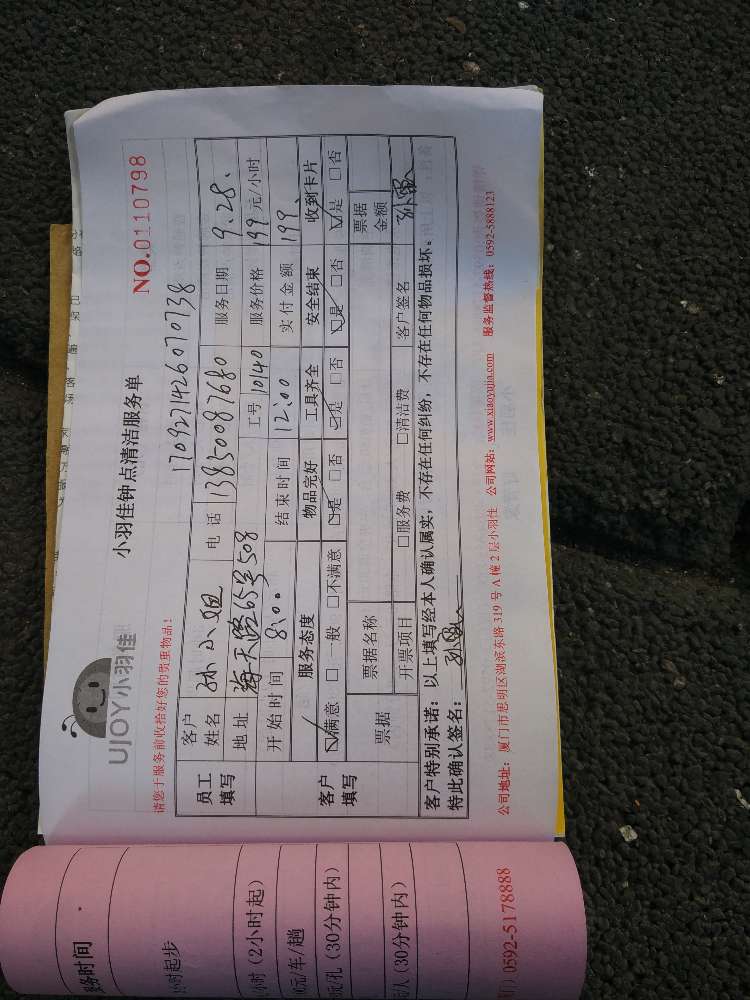 UJOY小羽佳
小羽佳钟点清洁服务单
NO.0110798
请您于服务前收拾好您的贵重物品!
170927426070738
员工填写
客户姓名 孙小姐 电话 13850087680 服务日期 9.28.
地址 海天路65号508 工号 10140 服务价格 199元/小时
开始时间 8:00 结束时间 12:00 实付金额 199.
客户填写
服务态度 物品完好 工具齐全 安全结束 收到卡片
☑满意 □一般 □不满意 ☑是 □否 ☑是 □否 ☑是 □否 ☑是 □否
票据 票据名称 票据金额
开票项目 □服务费 □清洁费 客户签名
客户特别承诺：以上填写经本人确认属实，不存在任何纠纷，不存在任何物品损坏。
特此确认签名：
公司地址：厦门市思明区湖滨东路319号A幢2层小羽佳 公司网站：www.xiaoyujia.com 服务监督热线：0592-5888123
务时间
小时起步
小时（2小时起）
元/车/趟
元/孔（30分钟内）
/人（30分钟内）
0592-5178888